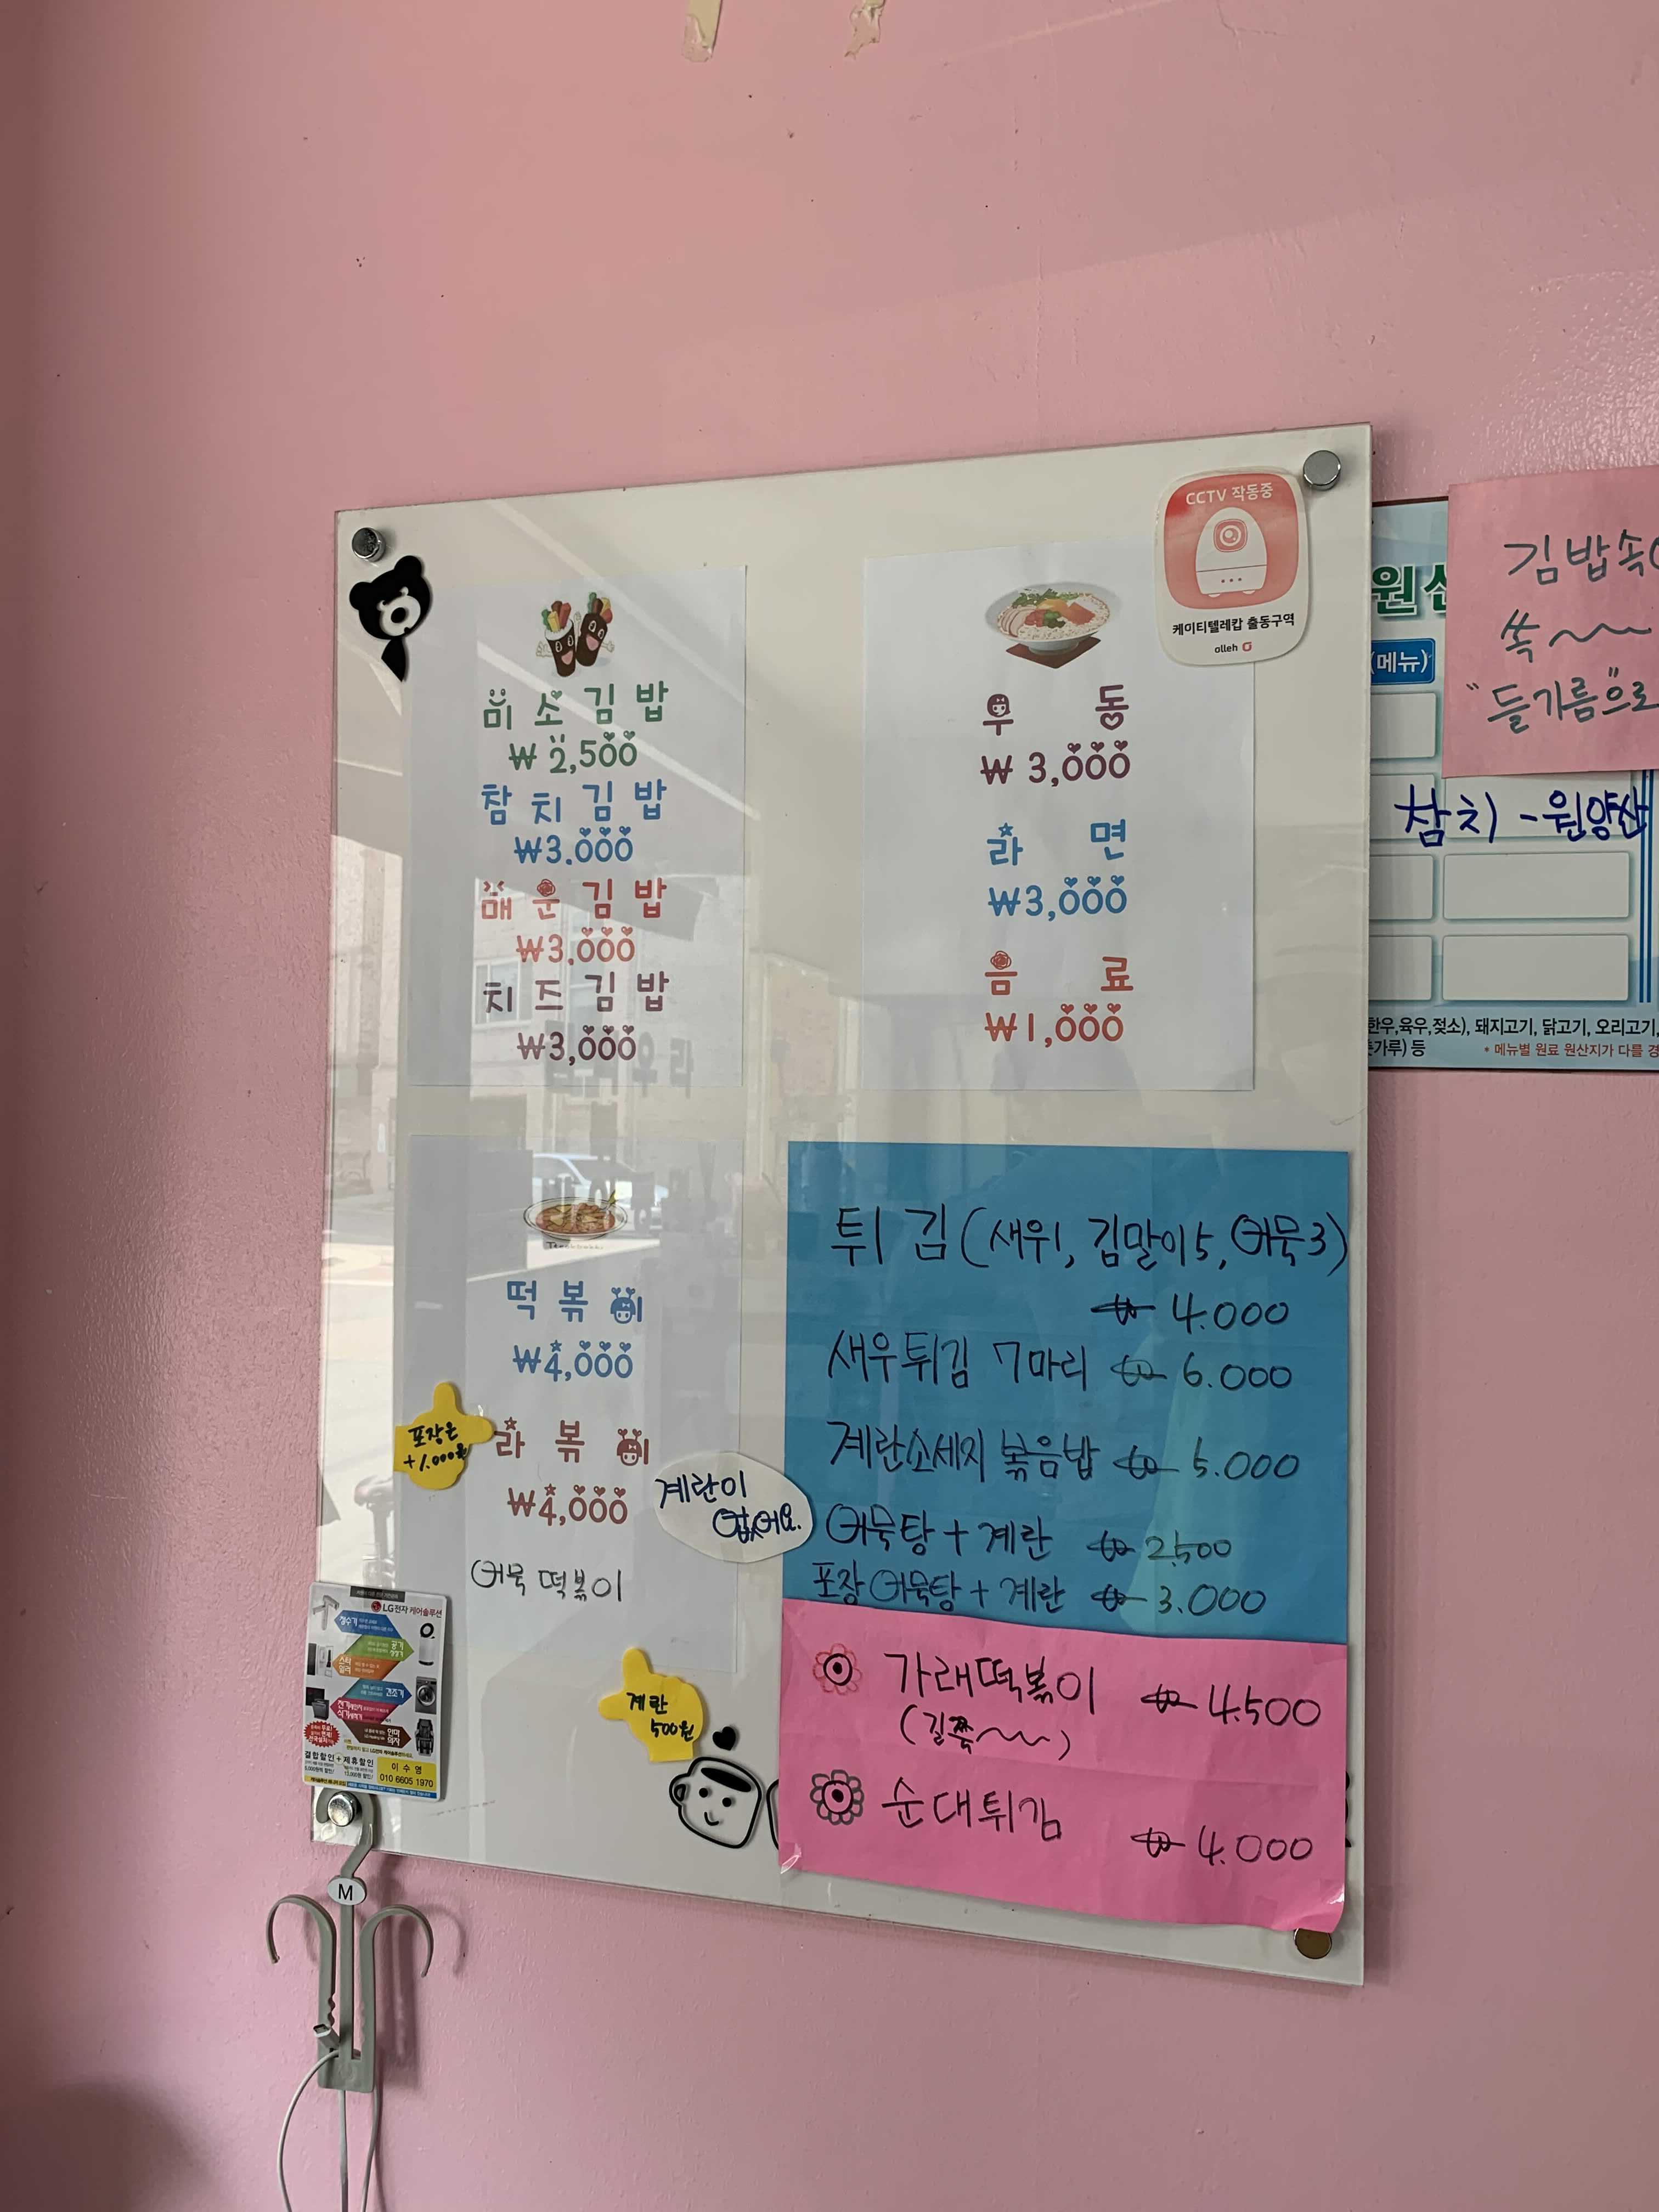 CCTV 작동중
케이티텔레캅 출동구역
olleh
미소김밥
₩2,500
참치김밥
₩3,000
매운김밥
₩3,000
치즈김밥
₩3,000
우동
₩3,000
라면
₩3,000
음료
₩1,000
떡볶이
₩4,000
포장은
+1.000원
라볶이
₩4,000
계란이
없어요.
어묵 떡볶이
계란
500원
튀김(새우1, 김말이5, 어묵3)
₩ 4.000
새우튀김 7마리 ₩ 6.000
계란소세지 볶음밥 ₩ 5.000
어묵탕 + 계란 ₩ 2,500
포장 어묵탕 + 계란 ₩ 3.000
가래떡볶이 ₩ 4.500
(길쭉~~)
순대튀김
₩ 4.000
김밥속
쏙~~
"들기름"으로
원산
(메뉴)
참치 - 원양산
한우,육우,젖소), 돼지고기, 닭고기, 오리고기,
가루) 등
* 메뉴별 원료 원산지가 다를 경
LG전자 케어솔루션
정수기
건조기
전기레인지
식기세척기
안마
의자
결합할인+제휴할인
이수영
010 6605 1970
M